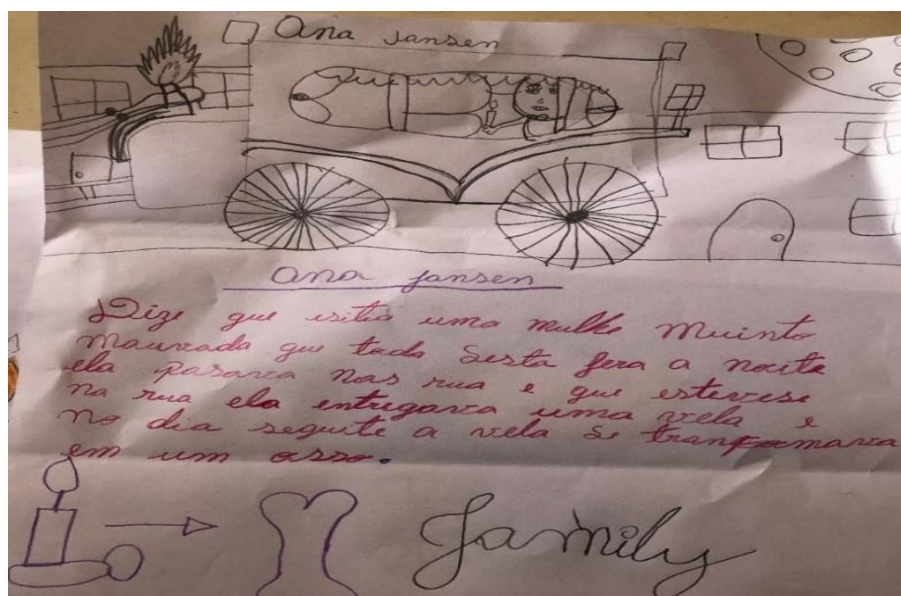 Ana Jansen
Ana Jansen
Dize que esitia uma mulhe muinto
mauvada que toda sesta fera a noite
ela pasava nas rua e que estevese
na rua ela entregava uma vela e
no dia seguite a vela se tranformava
em um osso.
Jamily